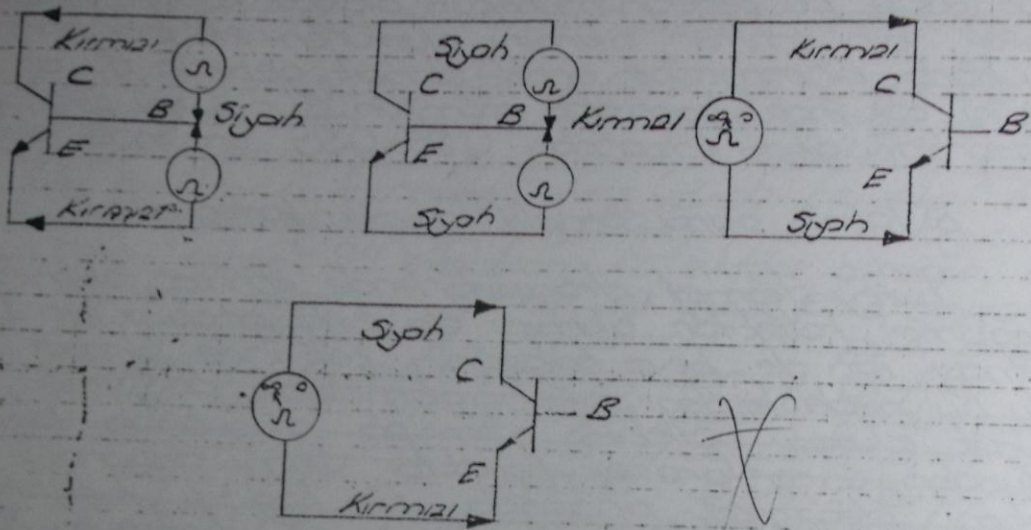 Kırmızı
Ω
C
B
Siyah
E
Ω
Kırmızı
Siyah
Ω
C
B
Kırmızı
E
Ω
Siyah
Kırmızı
C
∞ 0
Ω
B
E
Siyah
Siyah
C
∞ 0
Ω
B
E
Kırmızı